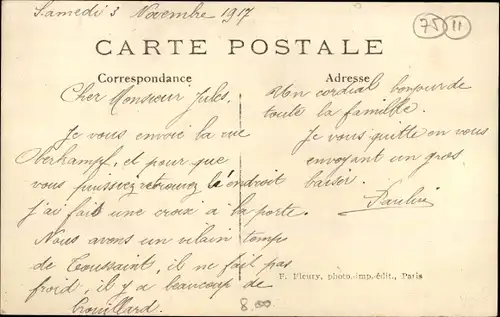 Samedi 3 Novembre 1917
75 11
CARTE POSTALE
Correspondance
Adresse
Cher Monsieur Jules,
Je vous envoie la rue
Oberkampf, et pour que
vous puissiez retrouvez l'endroit
j'ai fait une croix à la porte.
Nous avons un vilain temps
de Toussaint, il ne fait pas
froid, il y a beaucoup de
brouillard.
Un cordial bonjour de
toute la famille.
Je vous quitte en vous
envoyant un gros
baiser.
Pauline
F. Fleury, photo-imp.-édit., Paris
8.00